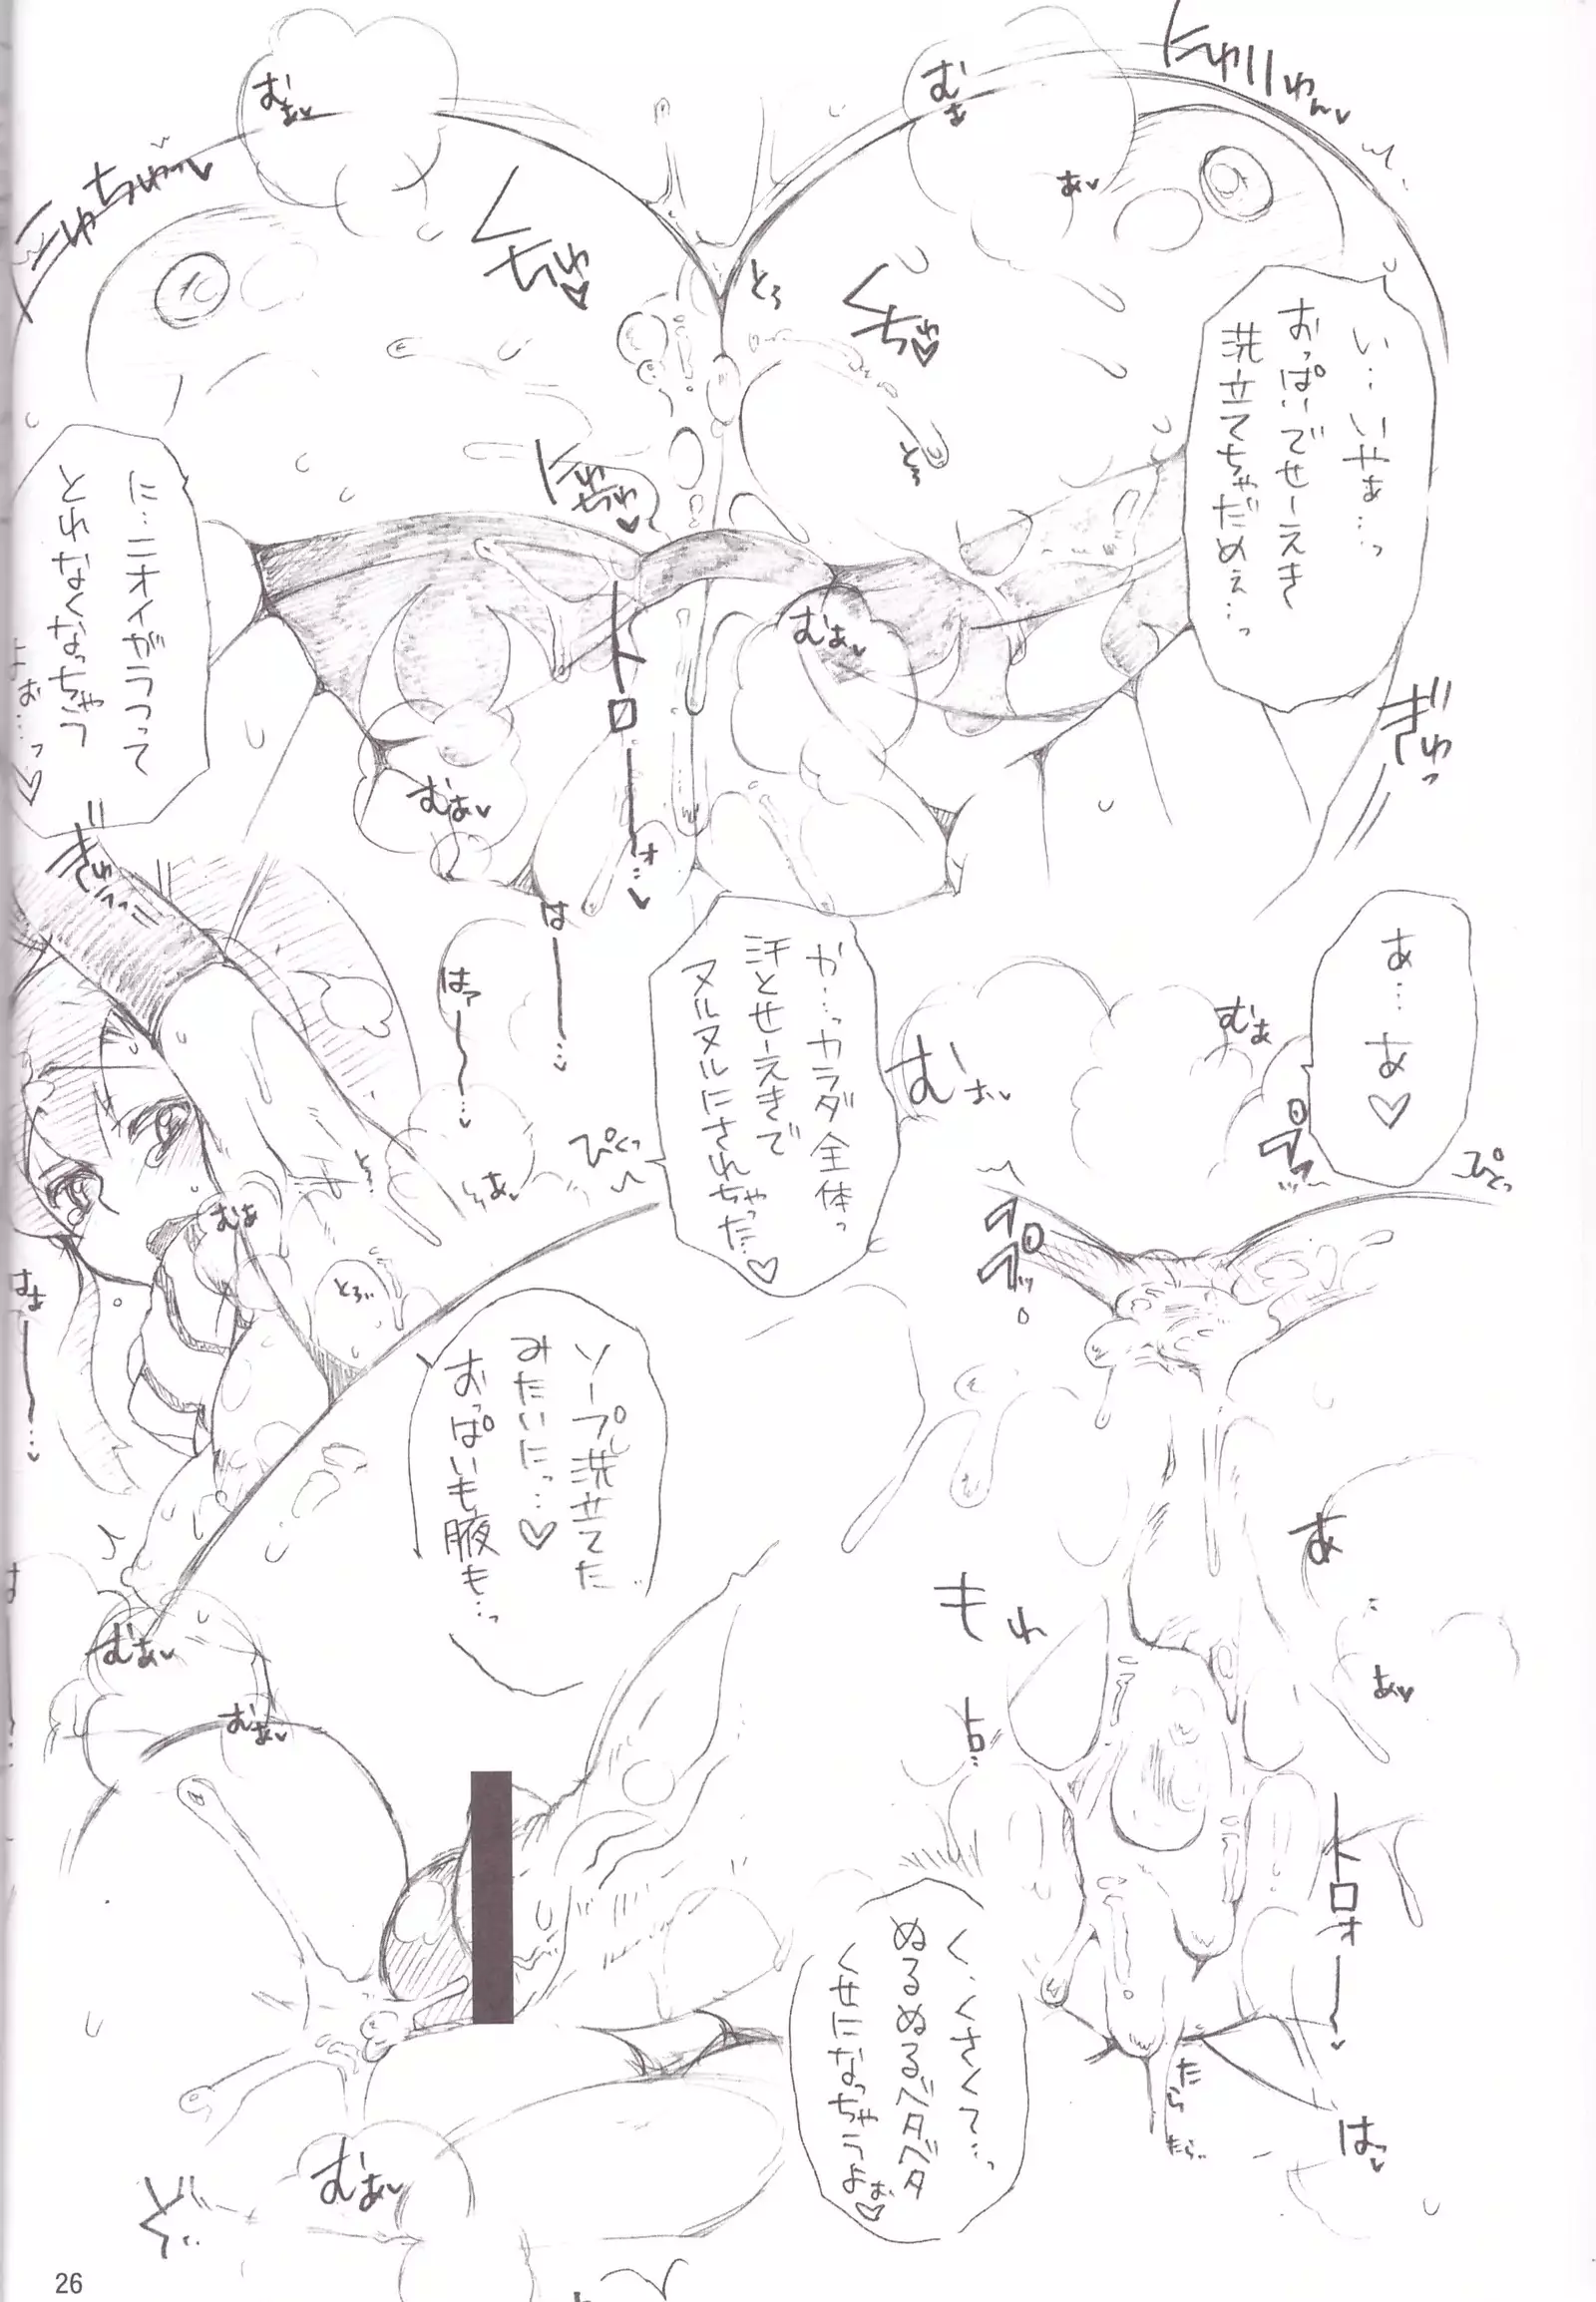 い…いやぁ…っ
おっぱいでせーえき
洗立てちゃだめぇ…っ
に…ニオイがうつって
とれなくなっちゃて
よぉ…っ♡
あ…あ♡
か…っカラダ全体っ
汗とせーえきで
ヌルヌルにされちゃった…♡
ソープ洗立てた
みたいにっ…♡
おっぱいも腋も…っ
く、くさくて…っ
ぬるぬるベタベタ
くせになっちゃうよぉ♡
むぁ
むぁ
あ
くちゅ♡
くちゅ♡
とろ
とろ
にゅちゅ
むぁ
むぁ
トローォ…
ぎゅっ
ぎゅ
はー…
はァー…
むぁ
むぁ
ぴくっ
ぴとっ
むぁ
とろ
はぁー…
むぁ
むぁ
もわ
あ
あ
トロ…
トロォー
たら
たら…
はっ
むぁ
26